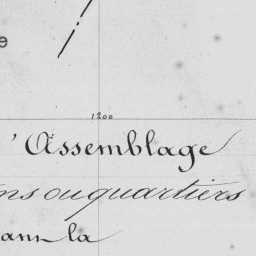 e
1200
'Assemblage
ns ou quartiers
dans la